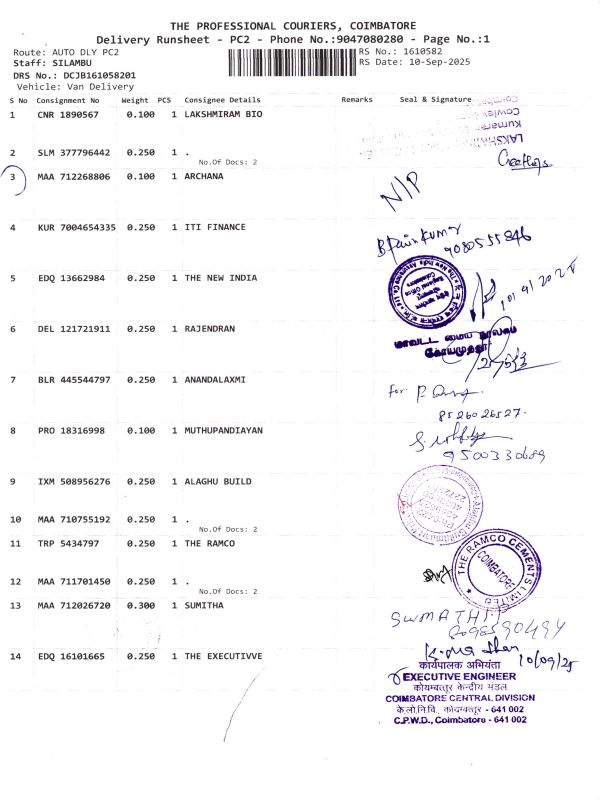 THE PROFESSIONAL COURIERS, COIMBATORE
Delivery Runsheet - PC2 - Phone No.:9047080280 - Page No.:1
Route: AUTO DLY PC2 RS No.: 1610582
Staff: SILAMBU RS Date: 10-Sep-2025
DRS No.: DCJB161058201
Vehicle: Van Delivery
S No Consignment No Weight PCS Consignee Details Remarks Seal & Signature
1 CNR 1890567 0.100 1 LAKSHMIRAM BIO
2 SLM 377796442 0.250 1 .
No.Of Docs: 2
3 MAA 712268806 0.100 1 ARCHANA
N/P
4 KUR 7004654335 0.250 1 ITI FINANCE
9080555846
5 EDQ 13662984 0.250 1 THE NEW INDIA
10/9/2025
6 DEL 121721911 0.250 1 RAJENDRAN
மாவட்ட மைய நூலகம்
கோயமுத்தூர்
7 BLR 445544797 0.250 1 ANANDALAXMI
for P.
8526026527.
8 PRO 18316998 0.100 1 MUTHUPANDIAYAN
9500330689
9 IXM 508956276 0.250 1 ALAGHU BUILD
10 MAA 710755192 0.250 1 .
No.Of Docs: 2
11 TRP 5434797 0.250 1 THE RAMCO
THE RAMCO CEMENTS LIMITED
COIMBATORE
12 MAA 711701450 0.250 1 .
No.Of Docs: 2
13 MAA 712026720 0.300 1 SUMITHA
SUMATHI.P
14 EDQ 16101665 0.250 1 THE EXECUTIVVE
10/09/25
कार्यपालक अभियंता
EXECUTIVE ENGINEER
कोयम्बत्तूर केन्द्रीय मंडल
COIMBATORE CENTRAL DIVISION
के.लो.नि.वि., कोयम्बत्तूर - 641 002
C.P.W.D., Coimbatore - 641 002